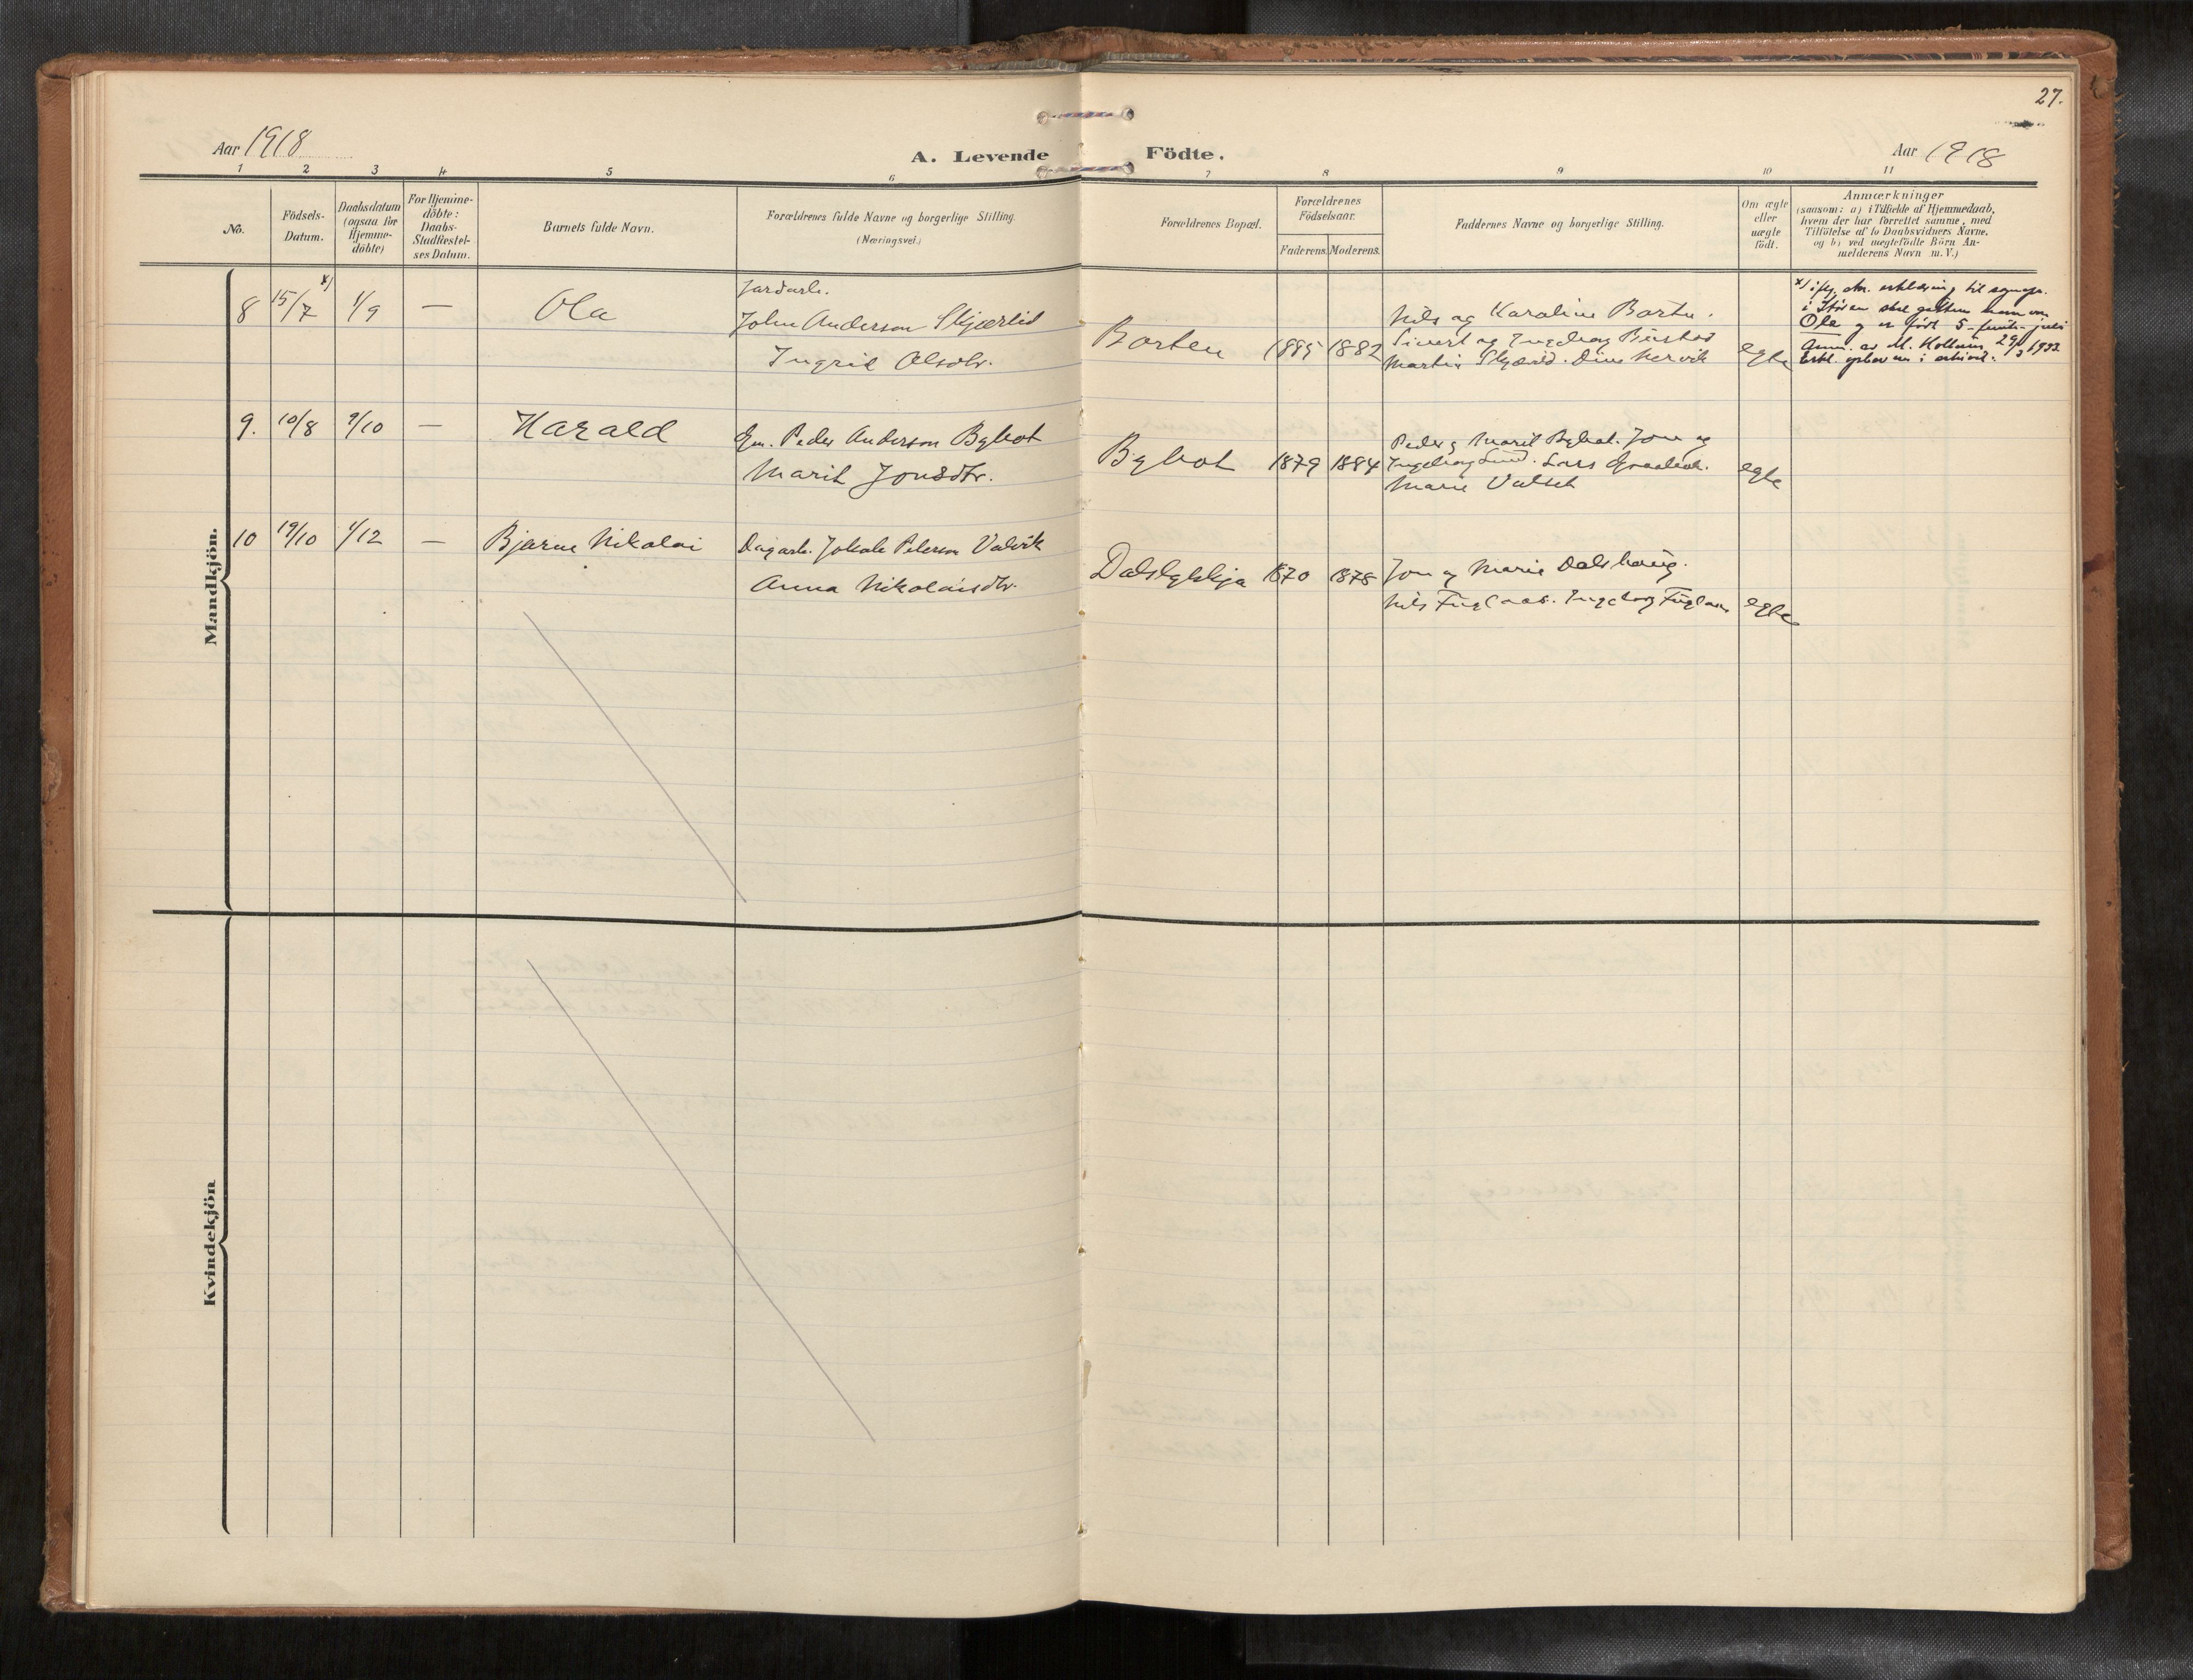 27.
Aar 1918
A. Levende Födte.
Aar 1918
1 2 3 4 5 6 7 8 9 10 11
No.
Födsels-
Datum.
Daabsdatum
(ogsaa for
Hjemme-
döbte)
For Hjemme-
döbte:
Daabs-
Stadfæstel-
ses Datum.
Barnets fulde Navn.
Forældrenes fulde Navne og borgerlige Stilling.
(Næringsvei.)
Forældrenes Bopæl.
Forældrenes
Födselsaar.
Faderens. Moderens.
Faddernes Navne og borgerlige Stilling.
Om ægte
eller
uægte
födt.
Anmærkninger
(saasom: a) i Tilfælde af Hjemmedaab,
hvem der har forrettet samme, med
Tilföielse af to Daabsvidners Navne,
og b) ved uægtefödte Börn An-
melderens Navn m.V.)
Mandkjön.
8 15/7 x) 1/9 — Ola
Jardarb.
John Anderson Skjærlid
Ingrid Olsdtr.
Borten 1885 1882
Nils og Karoline Borten.
Sivert og Ingeborg
Martin
egte
x)
erklæring til
i Støren skal
Ola og er født 5 - juli
Anm. av M. 1933
9. 10/8 9/10 — Harald
Gm. Peder Anderson Bybot
Marit Jonsdtr.
Bybot 1879 1884
Peder og Marit Bybot. Jon og
Ingeborg Lund. Lars
Marie
egte
10 19/10 1/12 — Bjarne Nikolai
Dagarb. Peterson Valvik
Anna Nikolaisdtr.
Dalslykkja 1870 1878
Jon og Marie Dalshaug.
Nils Fuglaas. Ingeborg Fuglaas
egte
Kvindekjön